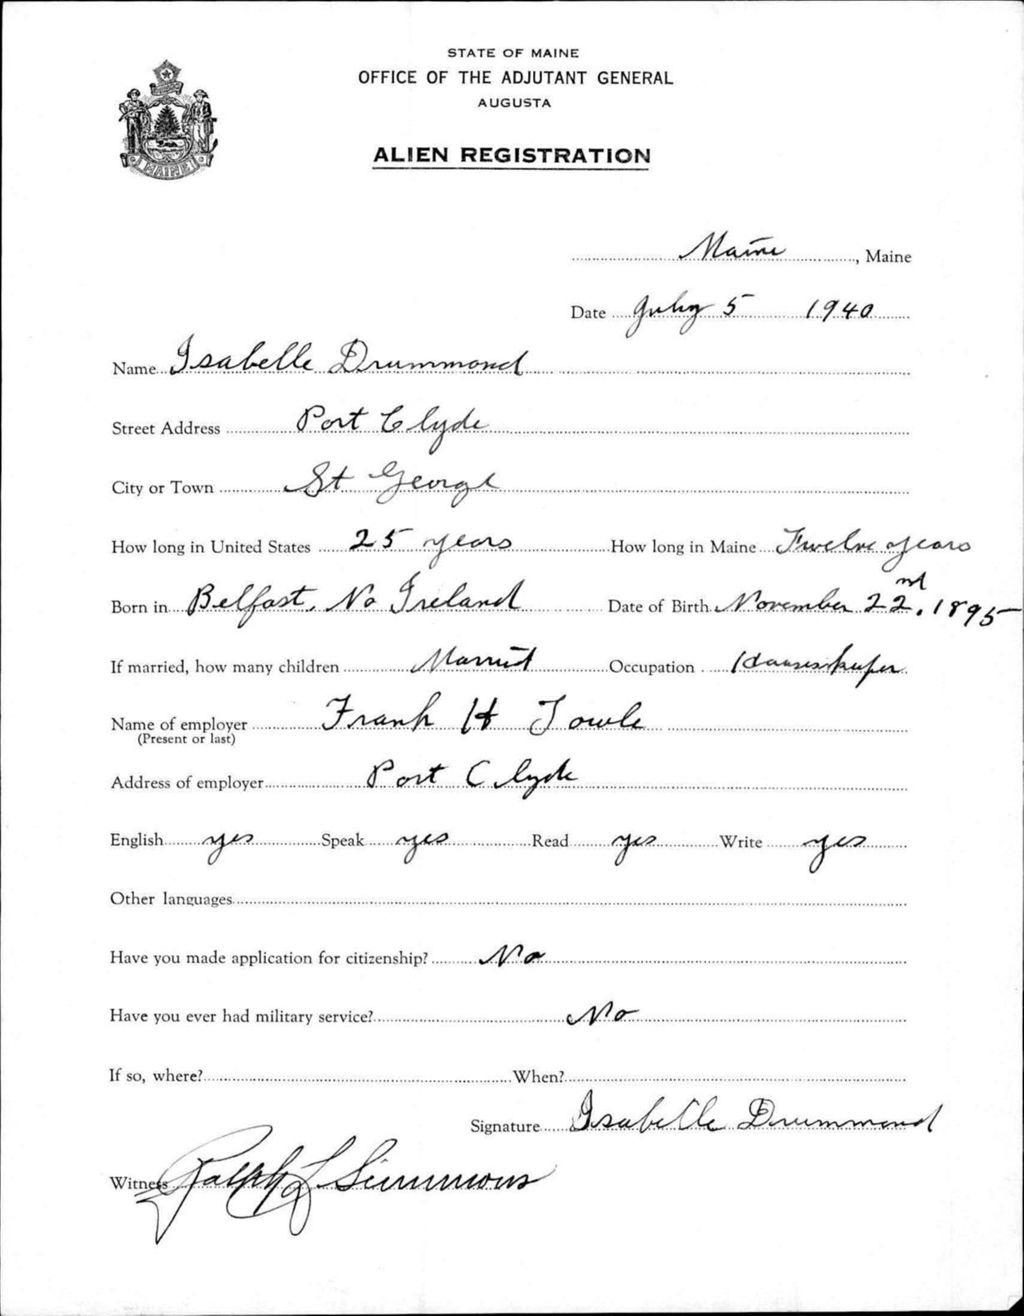 STATE OF MAINE
OFFICE OF THE ADJUTANT GENERAL
AUGUSTA
ALIEN REGISTRATION
MAINE
Maine, Maine
Date July 5 1940
Name Isabelle Drummond
Street Address Port Clyde
City or Town St George
How long in United States 25 years How long in Maine Twelve years
Born in Belfast, No Ireland Date of Birth November 22nd, 1895
If married, how many children Married Occupation Housekeeper
Name of employer Frank H Towle
(Present or last)
Address of employer Port Clyde
English yes Speak yes Read yes Write yes
Other languages
Have you made application for citizenship? No
Have you ever had military service? No
If so, where? When?
Signature Isabelle Drummond
Witness Ralph L Simmons